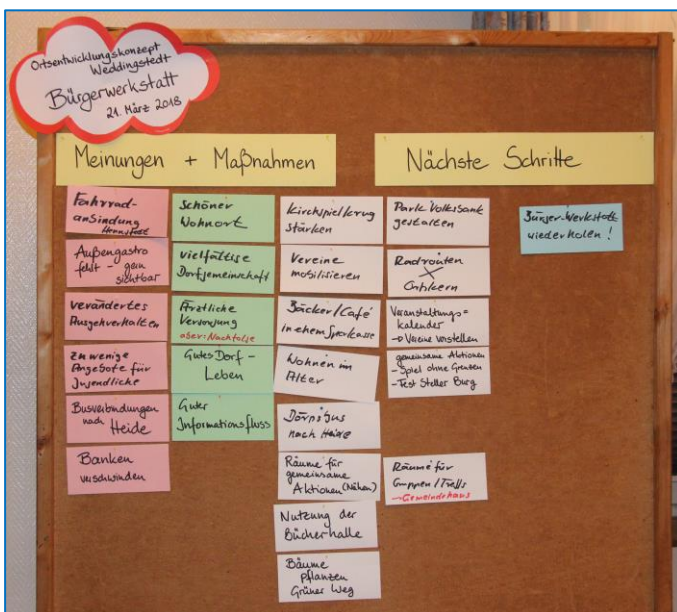 Ortsentwicklungskonzept
Weddingstedt
Bürgerwerkstatt
21. März 2018
Meinungen + Maßnahmen
Nächste Schritte
Fahrrad-
anbindung
Hennstedt
Außengastro
fehlt - gern
sichtbar
verändertes
Ausgehverhalten
zu wenige
Angebote für
Jugendliche
Busverbindungen
nach Heide
Banken
verschwinden
Schöner
Wohnort
vielfältige
Dorfgemeinschaft
Ärztliche
Versorgung
aber: Nachfolge
Gutes Dorf-
Leben
Guter
Informationsfluss
Kirchspielkrug
stärken
Vereine
mobilisieren
Bäcker/Café
in ehem Sparkasse
Wohnen im
Alter
Dörpsbus
nach Heide
Räume für
gemeinsame
Aktionen (Nähen)
Nutzung der
Bücherhalle
Bäume
pflanzen
Grüner Weg
Park Volksbank
gestalten
Radrouten
X
Ortskern
Veranstaltungs=
kalender
→ Vereine vorstellen
gemeinsame Aktionen
- Spiel ohne Grenzen
- Test Steller Burg
Räume für
Gruppen/Treffs
→ Gemeindehaus
Bürger-Werkstatt
wiederholen!